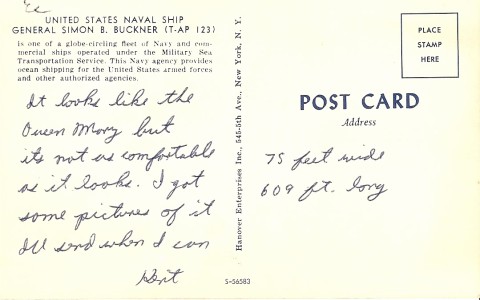 Es
UNITED STATES NAVAL SHIP
GENERAL SIMON B. BUCKNER (T-AP 123)
is one of a globe-circling fleet of Navy and com-
mercial ships operated under the Military Sea
Transportation Service. This Navy agency provides
ocean shipping for the United States armed forces
and other authorized agencies.
It looks like the
Queen Mary but
it's not as comfortable
as it looks. I got
some pictures of it
I'll send when I can
Kent
Hanover Enterprises Inc., 545-5th Ave., New York, N. Y.
PLACE
STAMP
HERE
POST CARD
Address
75 feet wide
609 ft. long
S-56583